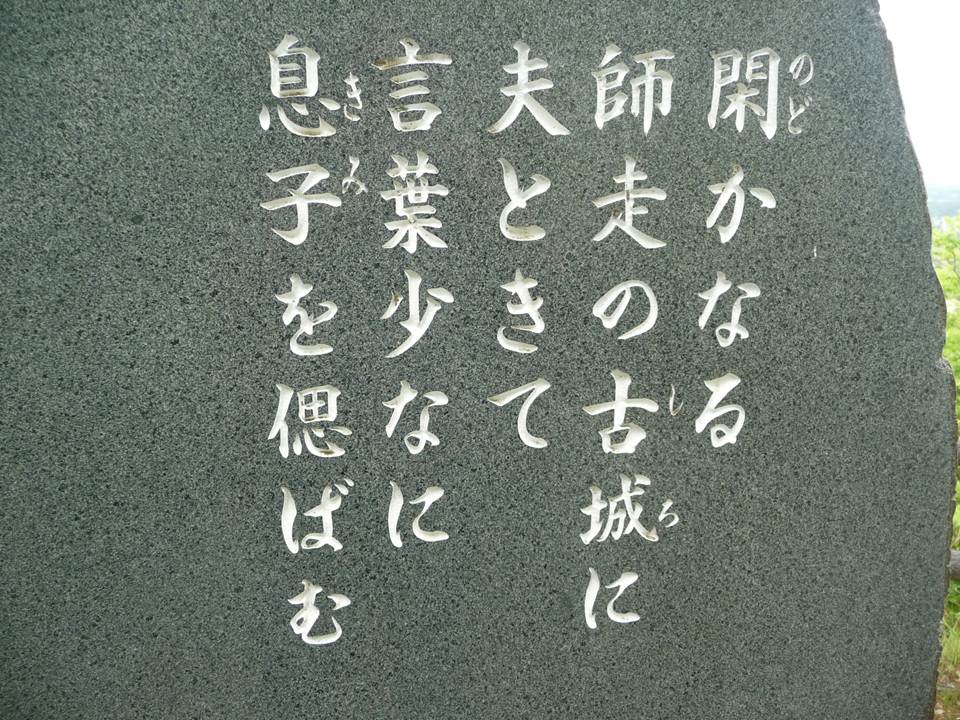 閑かなる
のど
師走の古城に
しろ
夫ときて
言葉少なに
息子を偲ばむ
きみ